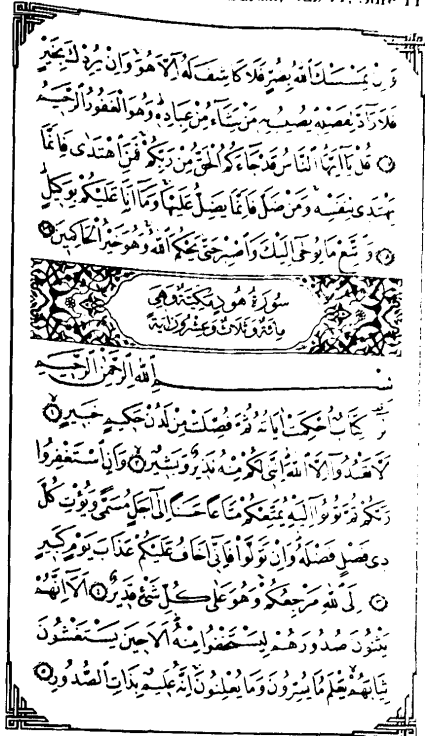 وَاِنْ يَمْسَسْكَ اللّٰهُ بِضُرٍّ فَلَا كَاشِفَ لَهُ اِلَّا هُوَ وَاِنْ يُرِدْكَ بِخَيْرٍ
فَلَا رَادَّ لِفَضْلِهِ يُصِيبُ بِهِ مَنْ يَشَاءُ مِنْ عِبَادِهِ وَهُوَ الْغَفُورُ الرَّحِيمُ
قُلْ يَا اَيُّهَا النَّاسُ قَدْ جَاءَكُمُ الْحَقُّ مِنْ رَبِّكُمْ فَمَنِ اهْتَدٰى فَاِنَّمَا
يَهْتَدِي لِنَفْسِهِ وَمَنْ ضَلَّ فَاِنَّمَا يَضِلُّ عَلَيْهَا وَمَا اَنَا عَلَيْكُمْ بِوَكِيلٍ
وَاتَّبِعْ مَا يُوحٰى اِلَيْكَ وَاصْبِرْ حَتّٰى يَحْكُمَ اللّٰهُ وَهُوَ خَيْرُ الْحَاكِمِينَ
سُورَةُ هُودٍ مَكِّيَّةٌ وَهِيَ
مِائَةٌ وَثَلَاثٌ وَعِشْرُونَ اٰيَةً
بِسْمِ اللّٰهِ الرَّحْمٰنِ الرَّحِيمِ
الٓرٰ كِتَابٌ اُحْكِمَتْ اٰيَاتُهُ ثُمَّ فُصِّلَتْ مِنْ لَدُنْ حَكِيمٍ خَبِيرٍ ١
اَلَّا تَعْبُدُوا اِلَّا اللّٰهَ اِنَّنِي لَكُمْ مِنْهُ نَذِيرٌ وَبَشِيرٌ ٢ وَاَنِ اسْتَغْفِرُوا
رَبَّكُمْ ثُمَّ تُوبُوا اِلَيْهِ يُمَتِّعْكُمْ مَتَاعًا حَسَنًا اِلٰى اَجَلٍ مُسَمًّى وَيُؤْتِ كُلَّ
ذِي فَضْلٍ فَضْلَهُ وَاِنْ تَوَلَّوْا فَاِنِّي اَخَافُ عَلَيْكُمْ عَذَابَ يَوْمٍ كَبِيرٍ
٣ اِلَى اللّٰهِ مَرْجِعُكُمْ وَهُوَ عَلٰى كُلِّ شَيْءٍ قَدِيرٌ ٤ اَلَا اِنَّهُمْ
يَثْنُونَ صُدُورَهُمْ لِيَسْتَخْفُوا مِنْهُ اَلَا حِينَ يَسْتَغْشُونَ
ثِيَابَهُمْ يَعْلَمُ مَا يُسِرُّونَ وَمَا يُعْلِنُونَ اِنَّهُ عَلِيمٌ بِذَاتِ الصُّدُورِ ٥